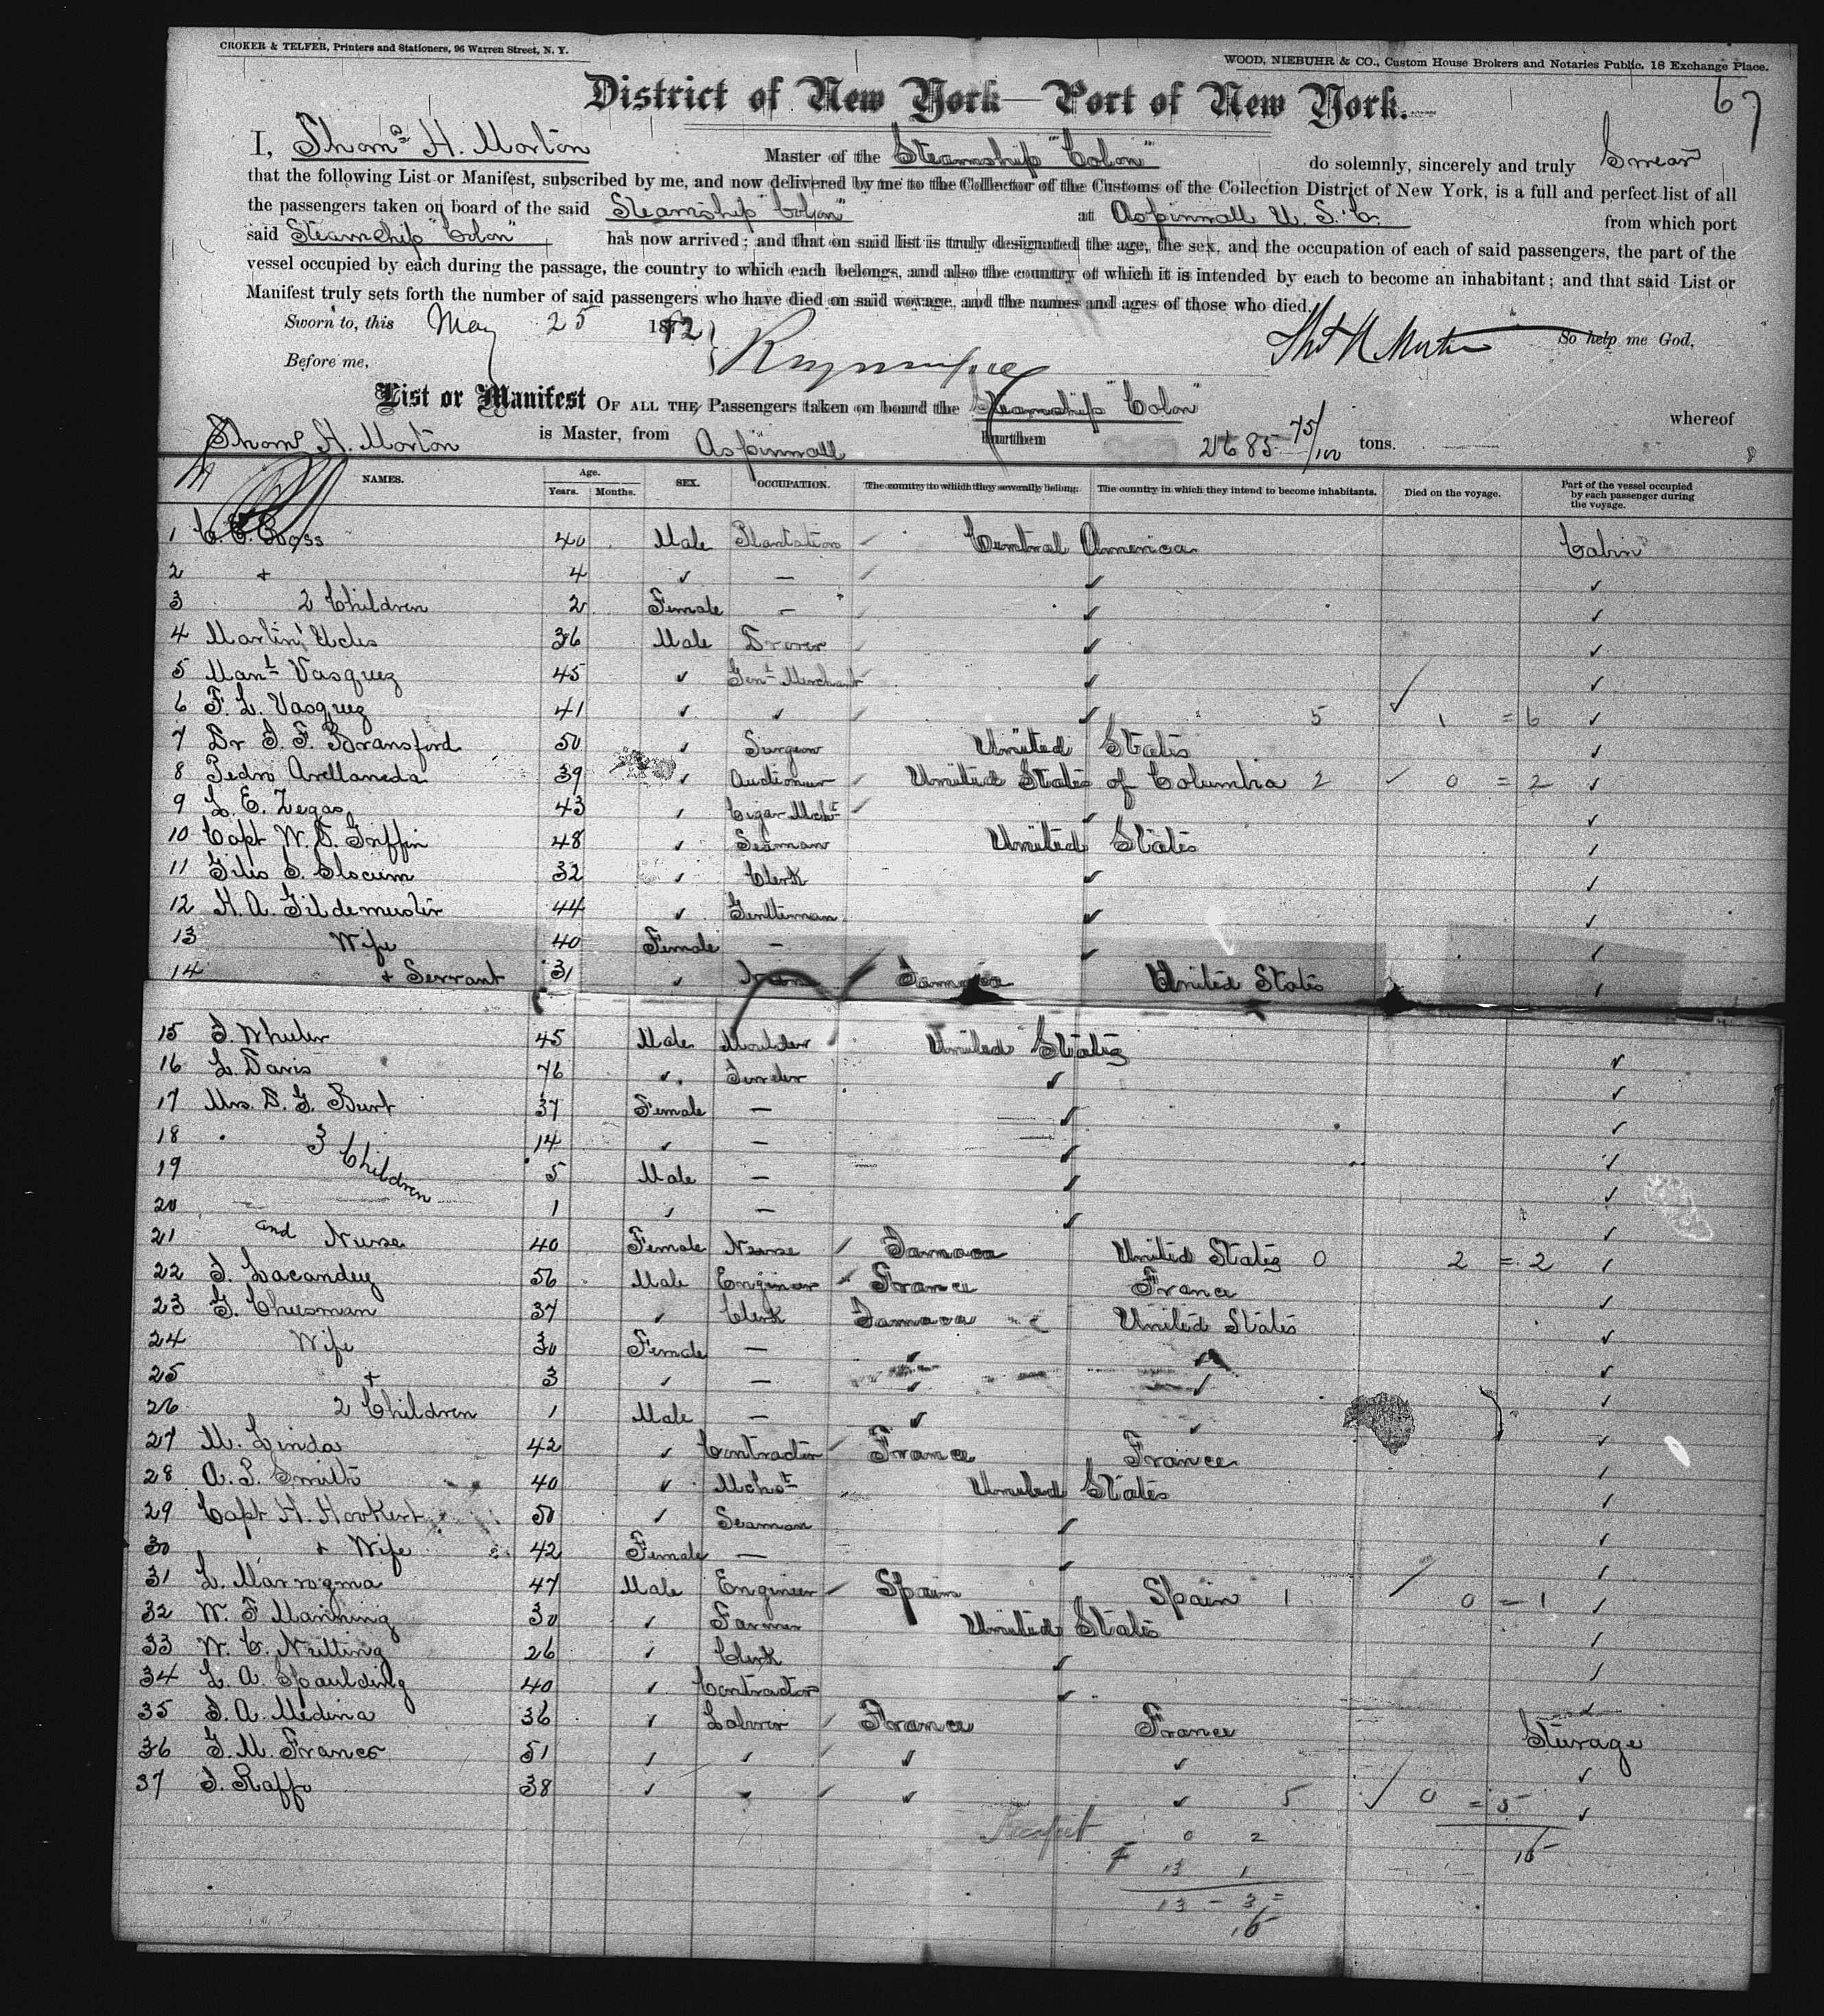 CROKER & TELFER, Printers and Stationers, 96 Warren Street, N. Y.
WOOD, NIEBUHR & CO., Custom House Brokers and Notaries Public, 18 Exchange Place.
67
District of New York—Port of New York.
I, Thomˢ H. Morton Master of the Steamship "Colon" do solemnly, sincerely and truly Swear
that the following List or Manifest, subscribed by me, and now delivered by me to the Collector of the Customs of the Collection District of New York, is a full and perfect list of all
the passengers taken on board of the said Steamship "Colon" at Aspinwall U. S. C. from which port
said Steamship "Colon" has now arrived; and that on said list is truly designated the age, the sex, and the occupation of each of said passengers, the part of the
vessel occupied by each during the passage, the country to which each belongs, and also the country of which it is intended by each to become an inhabitant; and that said List or
Manifest truly sets forth the number of said passengers who have died on said voyage, and the names and ages of those who died.
Sworn to, this May 25 1882 Thos H Morton So help me God,
Before me,
List or Manifest OF ALL THE Passengers taken on board the Steamship "Colon" whereof
Thomˢ H. Morton is Master, from Aspinwall Burthen 2685 75/100 tons.
NAMES. Age. Years. Months. SEX. OCCUPATION. The country to which they severally belong. The country in which they intend to become inhabitants. Died on the voyage. Part of the vessel occupied by each passenger during the voyage.
1 Ross 40 Male Plantation Central America Cabin
2 + 4 ✓ — ✓ ✓
3 2 Children 2 Female — ✓ ✓
4 Martin Ucles 36 Male Drover ✓ ✓
5 Manˡ Vasquez 45 ✓ Genˡ Merchant ✓ ✓
6 F. L. Vasquez 41 ✓ ✓ ✓ 5 ✓ 1 = 6 ✓
7 Dr J. F. Bransford 50 ✓ Surgeon United States ✓
8 Pedro Arellaneda 39 ✓ Auctioneer United States of Columbia 2 ✓ 0 = 2 ✓
9 L. E. Zegas 43 ✓ Cigar Mcht ✓ ✓
10 Capt W. D. Griffin 48 ✓ Seaman United States ✓
11 Giles S. Slocum 32 ✓ Clerk ✓ ✓
12 H. A. Gildemuster 44 ✓ Gentleman ✓ ✓
13 Wife 40 Female — ✓ ✓
14 + Servant 31 ✓ Jamaca United States ✓
15 J. Wheeler 45 Male Moulder United States ✓
16 L. Davis 76 ✓ ✓ ✓
17 Mrs. D. G. Burt 37 Female — ✓ ✓
18 3 Children 14 ✓ — ✓ ✓
19 5 Male — ✓ ✓
20 1 ✓ — ✓ ✓
21 and Nurse 40 Female Nurse Jamaca United States 0 2 = 2 ✓
22 J. Lacandey 56 Male Engineer France France ✓
23 G. Cheesman 37 ✓ Clerk Jamaca United States ✓
24 Wife 30 Female — ✓ ✓ ✓
25 + 3 ✓ — ✓ ✓ ✓
26 2 Children 1 Male — ✓ ✓ ✓
27 M. Linda 42 ✓ Contractor France France ✓
28 A. P. Smith 40 ✓ Mchᵗ United States ✓
29 Capt H. Hookert 50 ✓ Seaman ✓ ✓
30 + Wife 42 Female — ✓ ✓
31 L. Marrogma 47 Male Engineer Spain Spain 1 ✓ 0 — 1 ✓
32 W. F Manning 30 ✓ Farmer United States ✓
33 W. C. Neilting 26 ✓ Clerk ✓ ✓
34 L. A. Spaulding 40 ✓ Contractor ✓ ✓
35 J. A. Medina 36 ✓ Laborer France France Sturage
36 G. M. Franco 51 ✓ ✓ ✓ ✓ ✓
37 J. Raffo 38 ✓ ✓ ✓ ✓ 5 ✓ 0 = 5 ✓
0 2 16
13 1
13 — 3 =
16